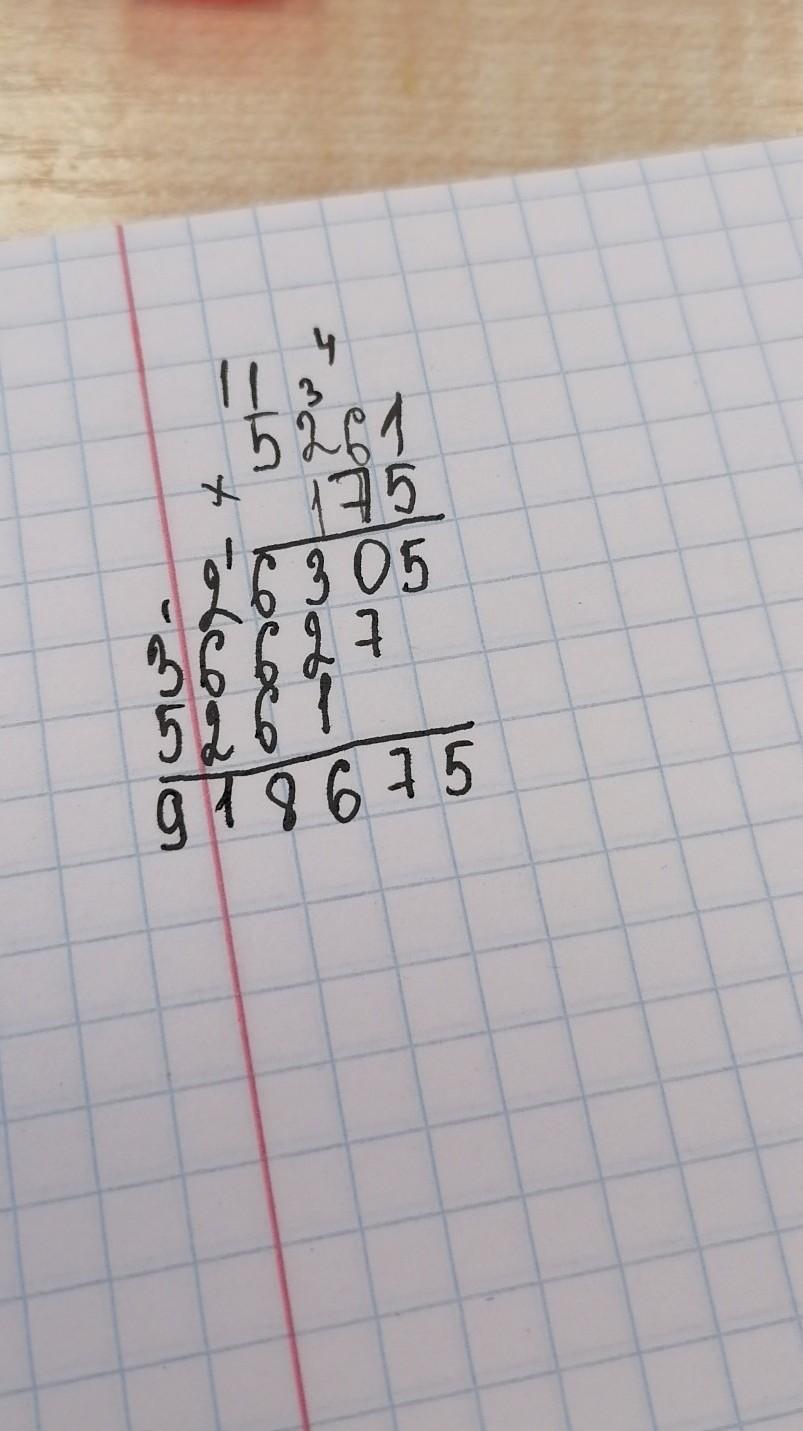 4
11 3
5261
× 175
1
26305
1
36627
5261
918675